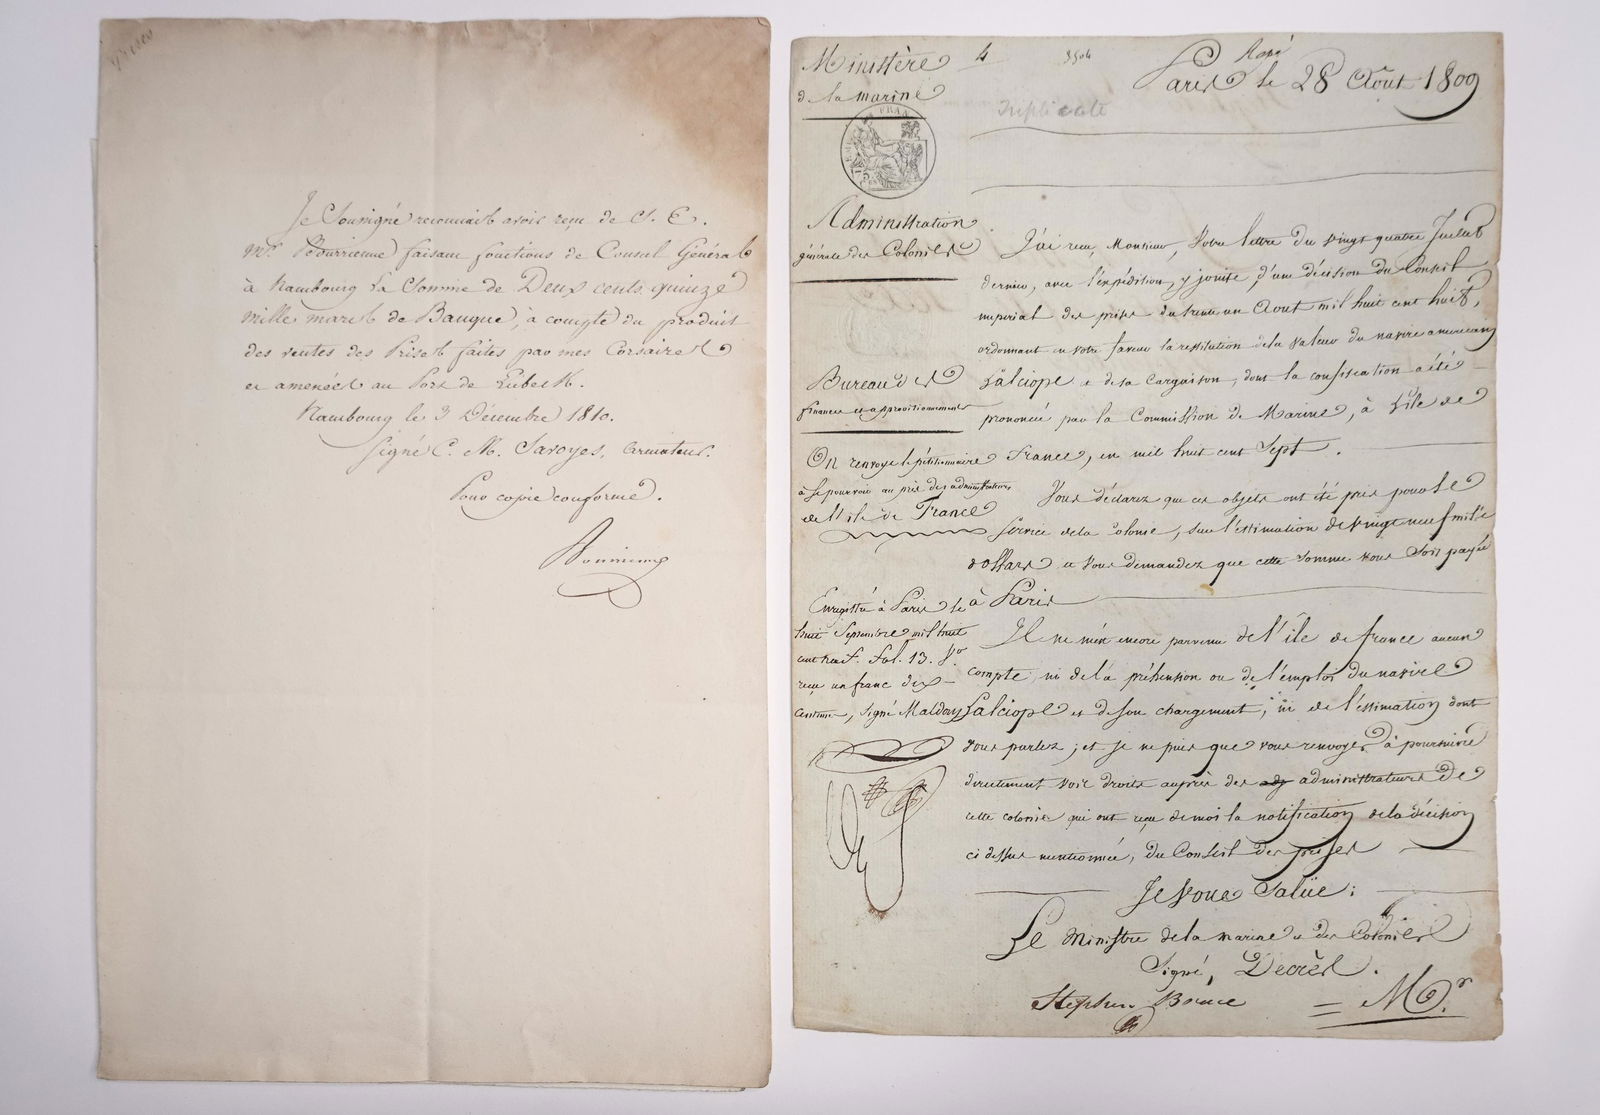 Prises
Je Soussigné reconnais avoir reçu de S. E.
Mr. Bourrienne faisant fonctions de Consul Général
à Hambourg La Somme de Deux cents quinze
mille marcs de Banque, à compte du produit
des ventes des Prises faites par mes Corsaires
et amenées au Port de Lubeck.
Hambourg le 3 Décembre 1810.
Signé C. M. Savoyes, armateur.
Pour copie conforme.
Bourrienne
Ministère
de la marine
4
3504
Triplicate
Paris le 28 Août 1809
Administration
générale des Colonies
Bureau des
finances et approvisionnements
On renvoye le pétitionnaire
à se pourvoir au près des administrateurs
de l'ile de France
Enregistré à Paris le
huit Septembre mil huit
cent neuf. fol. 13. Vo
reçu un franc dix
centimes, signé Maldan
J'ai reçu, Monsieur, Votre lettre du vingt quatre Juillet
dernier, avec l'expédition, y jointe, d'une décision du Conseil
impérial des prises du trente un Aout mil huit cent huit,
ordonnant en votre faveur la restitution de la valeur du navire américain
Calciope et de sa Cargaison, dont la confiscation a été
prononcée par la Commission de Marine, à L'ile de
France, en mil huit cent Sept.
Vous déclarez que ces objets ont été pris pour le
service de la Colonie, sur l'estimation de vingt neuf mille
dollars et vous demandez que cette somme vous soit payée
à Paris
Il ne m'est encore parvenu de l'île de france aucun
compte, ni de la préhension ou de l'emploi du navire
Calciope et de son chargement, ni de l'estimation dont
vous parlez; et je ne puis que vous renvoyer à poursuivre
directement vos droits auprès des administrateurs de
cette colonie qui ont reçu de moi la notification de la décision
ci dessus mentionnée, du Conseil des prises
Je vous Salüe;
Le Ministre de la marine et des Colonies
Signé, Decrès.
Stephen
= Mr.